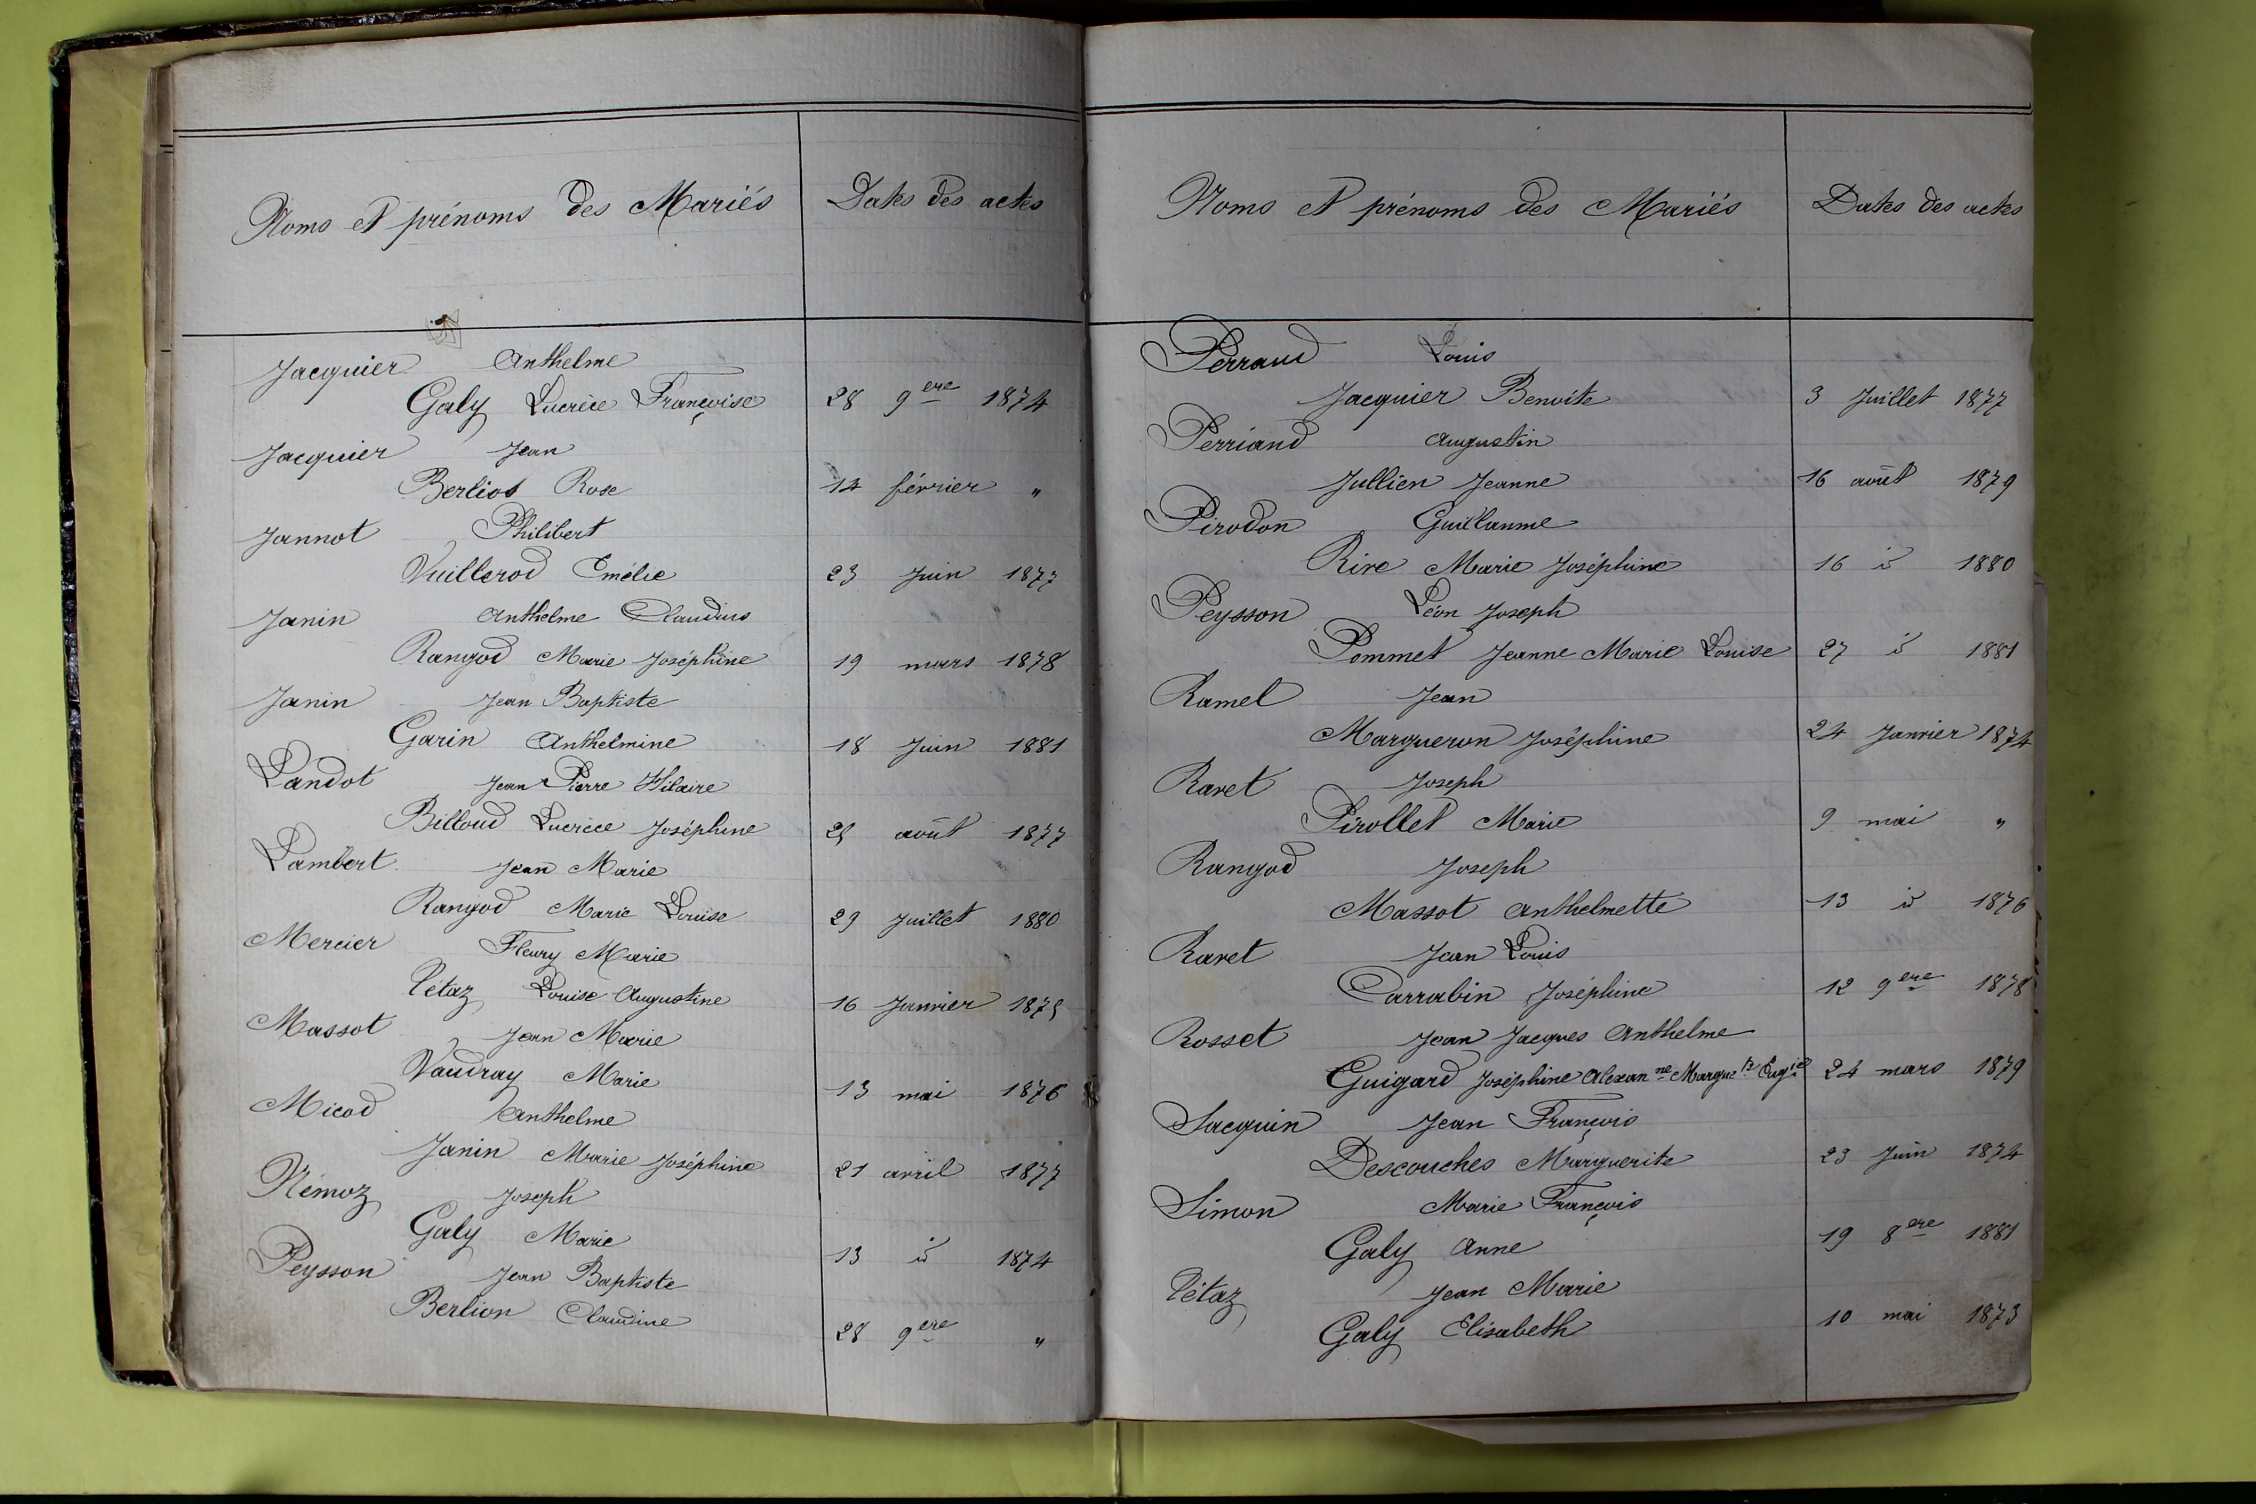 Noms et prénoms des Mariés Dates des actes
Jacquier Anthelme
Galy Lucrèce Françoise 28 9ere 1874
Jacquier Jean
Berliot Rose 14 février "
Jannot Philibert
Vuillerod Emélie 23 Juin 1877
Janin Anthelme Claudius
Rangod Marie Joséphine 19 mars 1878
Janin Jean Baptiste
Garin Anthelmine 18 Juin 1881
Landot Jean Pierre Hilaire
Billoud Lucrèce Joséphine 25 août 1877
Lambert Jean Marie
Rangod Marie Louise 29 Juillet 1880
Mercier Fleury Marie
Pétaz Louise Augustine 16 Janvier 1875
Massot Jean Marie
Vaudray Marie 13 mai 1876
Micod Anthelme
Janin Marie Joséphine 21 avril 1877
Némoz Joseph
Galy Marie 13 id 1874
Peysson Jean Baptiste
Berlion Claudine 28 9ere "
Noms et prénoms des Mariés Dates des actes
Perraud Louis
Jacquier Benoite 3 Juillet 1877
Perriand Augustin
Jullien Jeanne 16 août 1879
Pirodon Guillaume
Rive Marie Joséphine 16 id 1880
Peysson Léon Joseph
Pommet Jeanne Marie Louise 27 id 1881
Ramel Jean
Margueron Joséphine 24 Janvier 1874
Ravet Joseph
Pirollet Marie 9 mai "
Rangod Joseph
Massot Anthelmette 13 id 1876
Ravet Jean Louis
Carrabin Joséphine 12 9ere 1878
Rosset Jean Jacques Anthelme
Guigard Joséphine Alexan ne Margue te Eug ie 24 mars 1879
Sacquin Jean François
Descouches Marguerite 23 Juin 1874
Simon Marie François
Galy Anne 19 8ere 1881
Pétaz Jean Marie
Galy Elisabeth 10 mai 1873